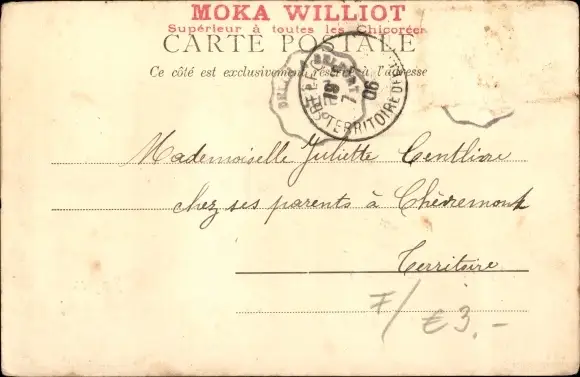 MOKA WILLIOT
Supérieur à toutes les Chicorées
CARTE POSTALE
Ce côté est exclusivement réservé à l'adresse
BELFORT
19 7 06
TERRITOIRE DE
Mademoiselle Juliette Centlivre
chez ses parents à Chèvremont
Territoire
F/ € 3.-